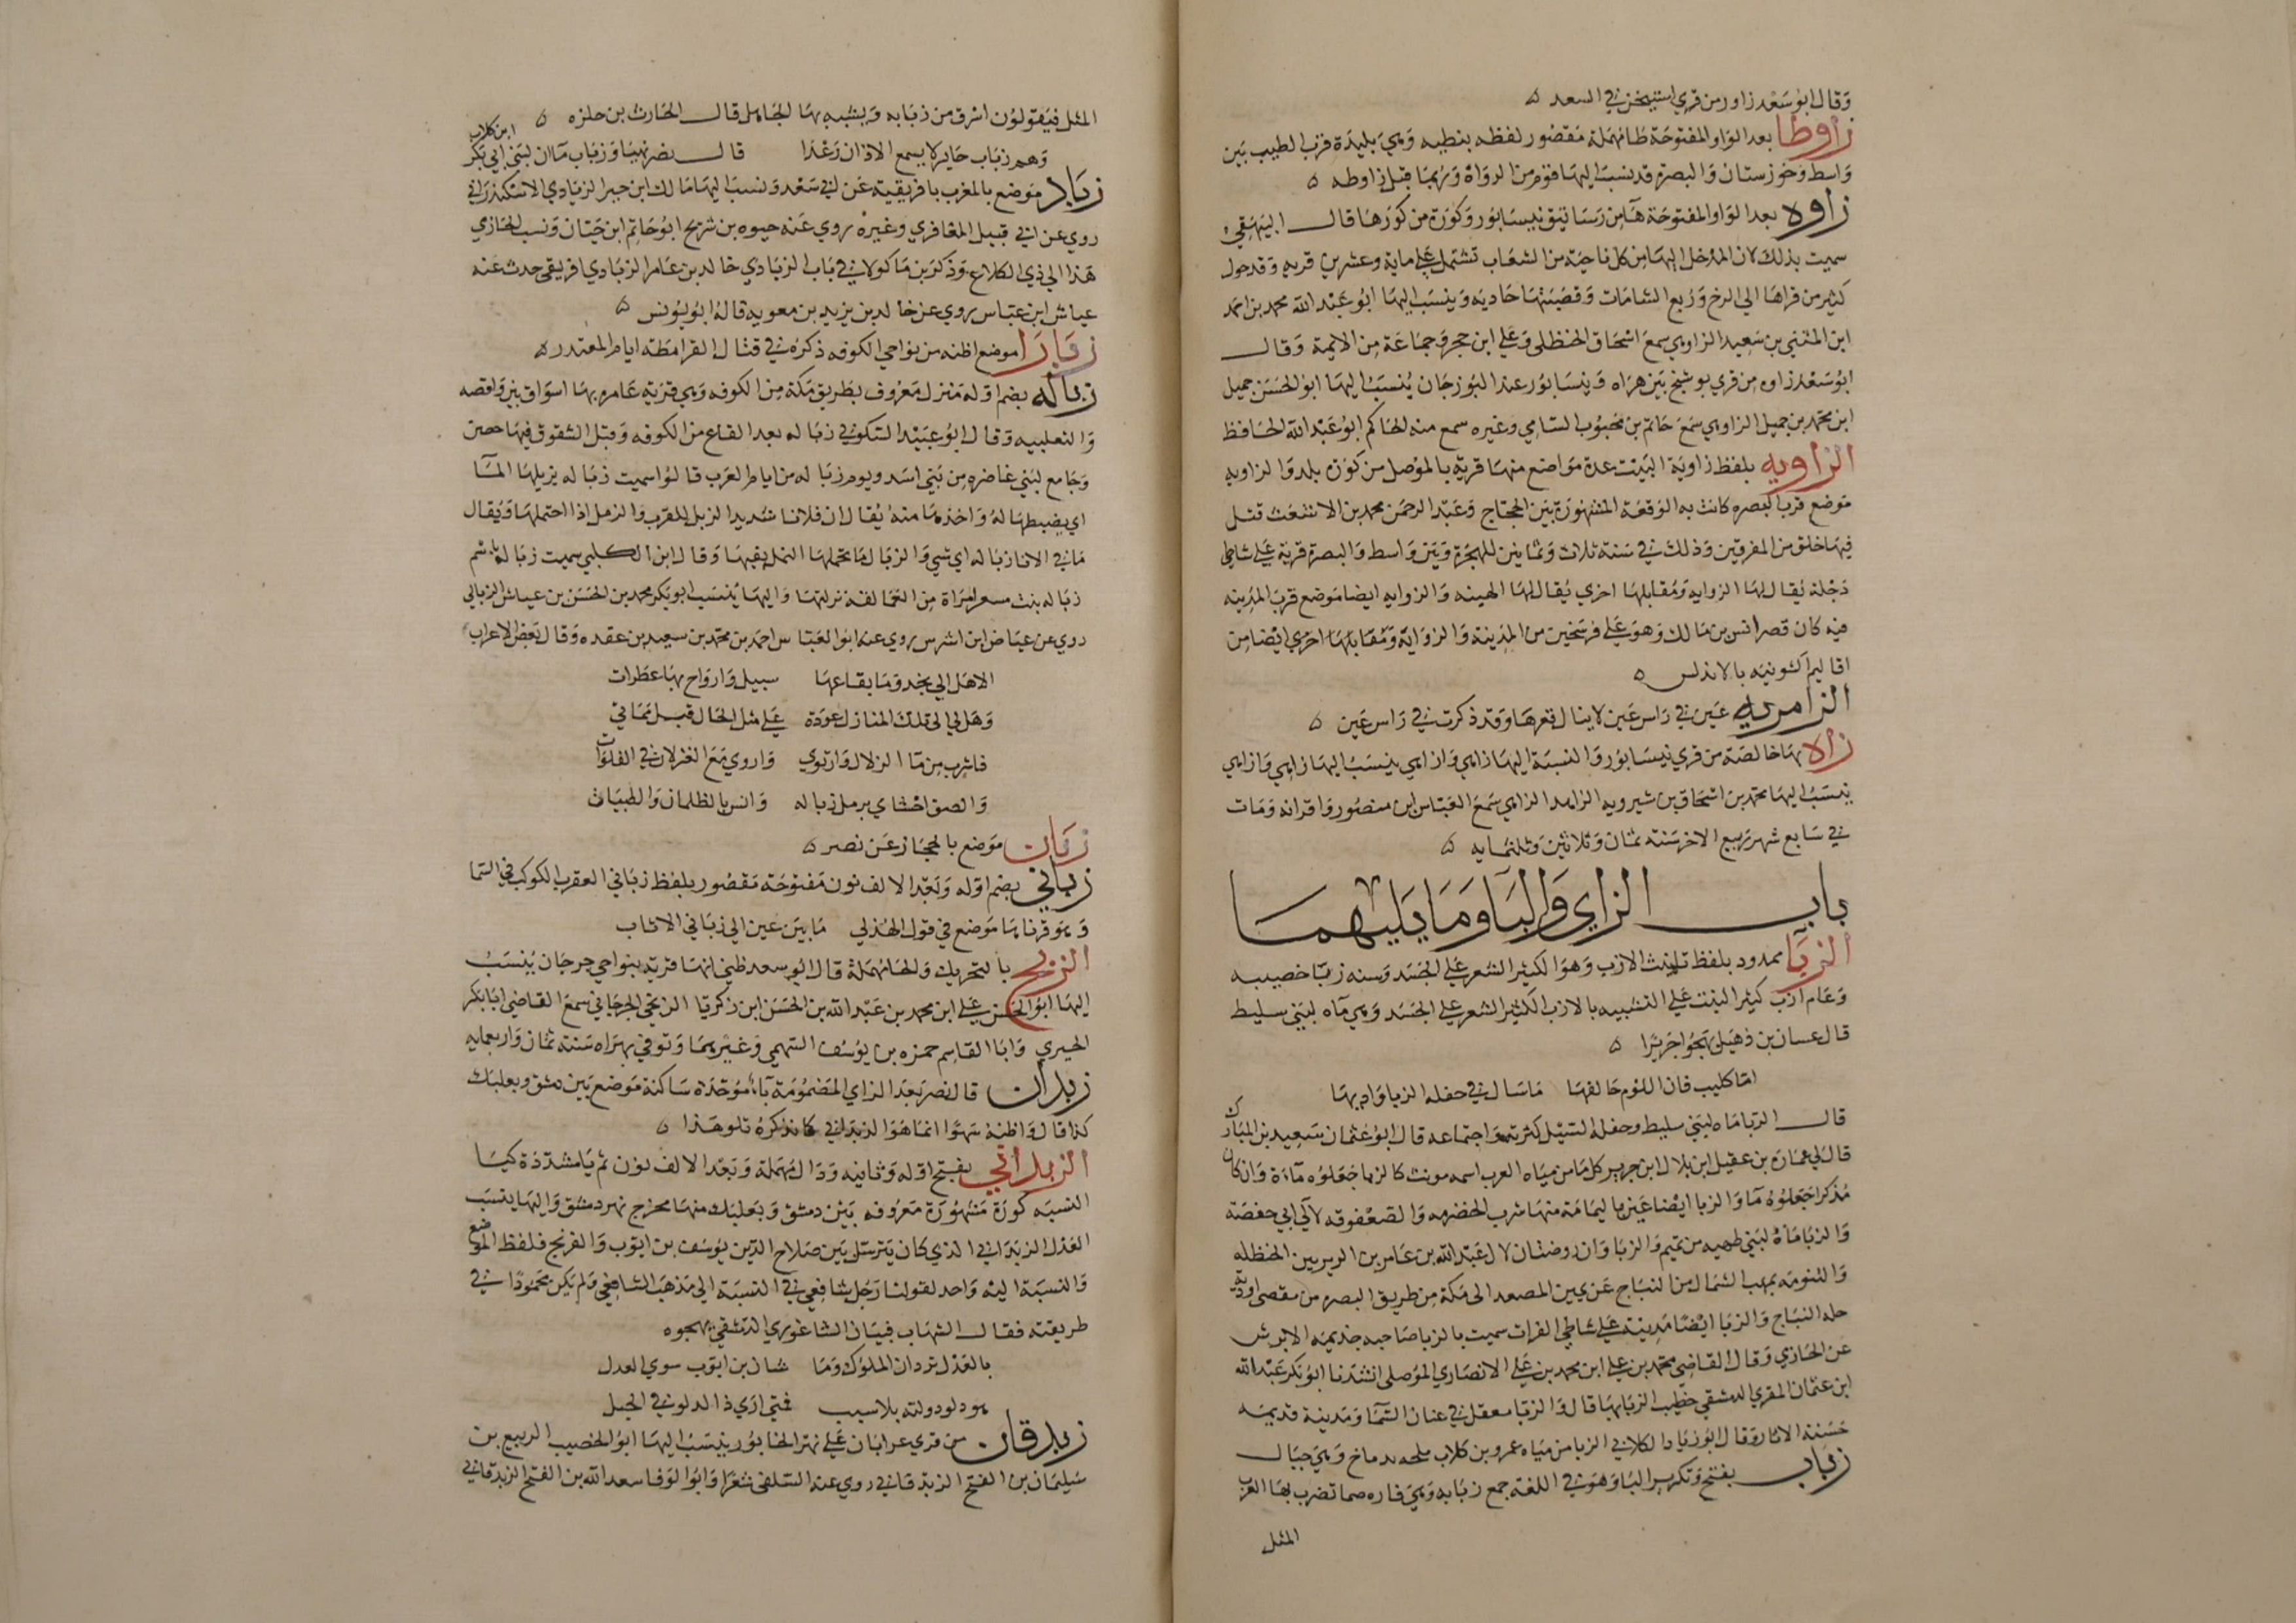 وقال ابو سعد زاور من قري اشتيخن في السغد ه
زاوطا بعد الواو المفتوحة طا مهملة مقصور لفظه بنطيه وهي بليدة قرب الطيب بين
واسط وخوزستان والبصرة قد نسب اليها قوم من الرواة وربما قيل زاوطه ه
زاوه بعد الواو المفتوحة ها من رساتيق نيسابور وكورة من كورها قال البيهقي
سميت بذلك لان المدخل اليها من كل ناحية من الشعاب تشتمل علي ماية وعشرين قريه وقد حول
كثير من قراها الي الرخ وربع الشامات وقصبتها حاديه وينسب اليها ابو عبد الله محمد بن احمد
ابن المثني بن سعيد الزاوهي سمع اسحاق الحنظلي وعلي ابن حجر وجماعة من الايمة وقال
ابو سعد زاوه من قري بوشنج بين هراه ونيسابور عند البوزجان ينسب اليها ابو الحسن جميل
ابن محمد بن جميل الزاوهي سمع حاتم بن محبوب السامي وغيره سمع منه الحاكم ابو عبد الله الحافظ
الزاويه بلفظ زاوية البيت عدة مواضع منها قرية بالموصل من كورة بلد والزاويه
موضع قرب البصره كانت به الوقعة المشهورة بين الحجاج وعبد الرحمن محمد بن الاشعث قتل
فيها خلق من الفريقين وذلك في سنة ثلاث وثمانين للهجرة وبين واسط والبصرة قرية علي شاطي
دجلة يقال لها الزاويه ومقابلها اخري يقال لها الهينه والزاويه ايضا موضع قرب المدينه
فيه كان قصر انس بن مالك وهو علي فرسخين من المدينة والزواية ومقابلها اخري ايضا من
اقاليم اكشونيه بالاندلس ه
الزامريه عين في راس عين لا ينال قعرها وقد ذكرت في راس عين ه
زاه بها خالصة من قري نيسابور والنسبة اليها زاهي وازاهي ينسب اليها زاهي وازاهي
ينسب اليها محمد بن اسحاق بن شيرويه الزاهد الزاهي سمع العباس ابن منصور واقرانه ومات
في سابع شهر ربيع الاخر سنة ثمان وثلاثين وثلثمايه ه
باب الزاي والبا وما يليهما
الزبا ممدود بلفظ تانيث الازب وهو الكثير الشعر علي الجسد وسنه زبا خصيبه
وعام ازب كثير النبت علي التشبيه بالازب الكثير الشعر علي الجسد وهي ماه لبني سليط
قال غسان بن ذهيل يهجوا جريرا ه
اما كليب فان اللوم حالفها ما سال في حفله الزبا واديها
قال الزبا ماه لبني سليط وحفله السيل كثرته واجتماعه قال ابو عثمان سعيد بن المبارك
قال لي عمارة بن عقيل ابن بلال ابن جرير كل ما من مياه العرب اسمه مونث كالزبا جعلوه ماءة وان كان
مذكرا جعلوه ما والزبا ايضا عين باليمامة منها شرب الخضرمه والصعفوقه لال ابي حفصة
والزبا ماة لبني طهيه من تميم والزباوان روضتان لال عبد الله بن عامر بن
والتنومه بمهب الشمال من النباج عن يمين المصعد الي مكة من طريق البصره من مقضي اودية
حله النباج والزبا ايضا مدينة علي شاطي الفرات سميت بالزبا صاحبه جذيمه الابرش
عن الحازمي وقال القاضي محمد بن علي ابن محمد بن علي الانصاري الموصلي انشدنا ابو بكر عبد الله
ابن عثمان المقري الدمشقي خطيب الزبا بها قالوا الزبا معقل في عنان السما ومدينة قديمه
حسنة الاثار وقال ابو زياد الكلابي الزبا من مياه عمرو بن كلاب ملحه بدماخ وهي جبال
زباب بفتح وتكرير البا وهو في اللغة جمع زبابه وهي فاره صما تضرب بها العرب
المثل
المثل فيقولون اسرق من زبابه ويشبه بها الجاهل قال الحارث بن حلزه ه
وهم زباب حاير لا يسمع الاذان رعدا قال نصر نهيبا وزباب ماان لبني ابي بكر ابن كلاب
زباد موضع بالمغرب بافريقية عن ابي سعد ونسب اليها مالك ابن جبير الزبادي الاسكندراني
روي عن ابي قبيل المغافري وغيره روي عنه حيوه بن شريح ابو حاتم ابن حبان ونسب الحازمي
هذا الي ذي الكلاع وذكر بن ماكولا في باب الزبادي خالد بن عامر الزبادي افريقي حدث عنه
عياش ابن عباس روي عن خالد بن يزيد بن معويه قاله ابو يونس ه
زبارا موضع اظنه من نواحي الكوفه ذكره في قتال القرامطة ايام المقتدر ه
زباله بضم اوله منزل معروف بطريق مكة من الكوفه وهي قرية عامره بها اسواق بين واقصه
والثعلبيه وقال ابو عبيد السكوني زباله بعد القاع من الكوفه وقبل الشقوق فيها حصن
وجامع لبني غاضره من بني اسد ويوم زباله من ايام العرب قالوا سميت زباله بزبلها المآ
اي بضبطها له واخذها منه يقال ان فلانا شديد الزبل للقرب والزمل اذا احتملها ويقال
ما في الانا زباله اي شي والزبال ما تحمله النمل بفيها وقال ابن الكلبي سميت زباله باسم
زباله بنت مسعر امراة من العمالقة نزلتها واليها ينسب ابو بكر محمد بن الحسن بن عياش الزبالي
روي عن عياض ابن اشرس روي عنه ابو العباس احمد بن محمد بن سعيد بن عقده وقال بعض الاعراب
الا هل الي نجد وما بقاعها سبيل وارواح بها عطرات
وهل لي الي تلك المنازل عودة علي مثل الحال قبل مماتي
فاشرب من ما الزلال وارتوي واروي مع الغزلان في الفلوات
والصق احشاي برمل زباله وانس بالظلمان والظبيات
زبان موضع بالحجاز عن نصر ه
زباني بضم اوله وبعد الالف نون مفتوحة مقصور بلفظ زباني العقرب الكوكب في السما
وهو قرناها موضع في قول الهذلي ما بين عين الي زباني الاثاب
الزبح بالتحريك والحا مهملة قال ابو سعد ظني انها قرية بنواحي جرجان ينسب
اليها ابو الحسن علي ابن محمد بن عبد الله بن الحسن ابن زكريا الزبحي الجرجاني سمع القاضي ابا بكر
الحيري وابا القاسم حمزه بن يوسف السهمي وغيرهما وتوفي بهراه سنة ثمان واربعمايه
زبدان قال نصر بعد الزاي المضمومة با موحدة ساكنة موضع بين دمشق وبعلبك
كذا قال واظنه سهوا انما هو الزبداني كما نذكره تلو هذا ه
الزبداني بفتح اوله وثانيه ودال مهملة وبعد الالف نون ثم يا مشددة كيا
النسبه كورة مشهورة معروفه بين دمشق وبعلبك منها مخرج نهر دمشق واليها ينسب
العدل الزبداني الذي كان يترسل بين صلاح الدين يوسف بن ايوب والفرنج فلفظ الموضع
والنسبة اليه واحد لقولنا رجل شافعي في النسبة الي مذهب الشافعي ولم يكن محمودا في
طريقته فقال الشهاب فتيان الشاغوري الدمشقي يهجوه
بالعدل تزدان الملوك وما شان بن ايوب سوي العدل
هو دلو دولته بلا سبب فمتي اري ذا الدلو في الحبل
زبدقان من قري عرابان علي نهر الخابور ينسب اليها ابو الخصيب الربيع بن
سليمان بن الفتح الزبدقاني روي عنه السلفي شعرا وابو الوفا سعد الله بن الفتح الزبدقاني